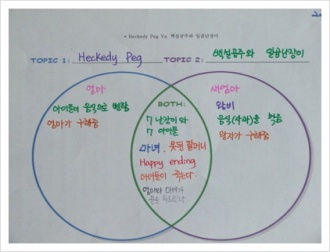 • Heckedy Peg Vs. 백설공주와 일곱난장이
TOPIC 1: Heckedy Peg TOPIC 2: 백설공주와 일곱난장이
엄마
아이들이 음식으로 변함
엄마가 구해줌
BOTH:
7 난장이와
7 아이들
마녀, 못된 할머니
Happy ending
마녀들이 죽는다
새엄마
왕비
음식(사과)을 먹음
왕자가 구해줌